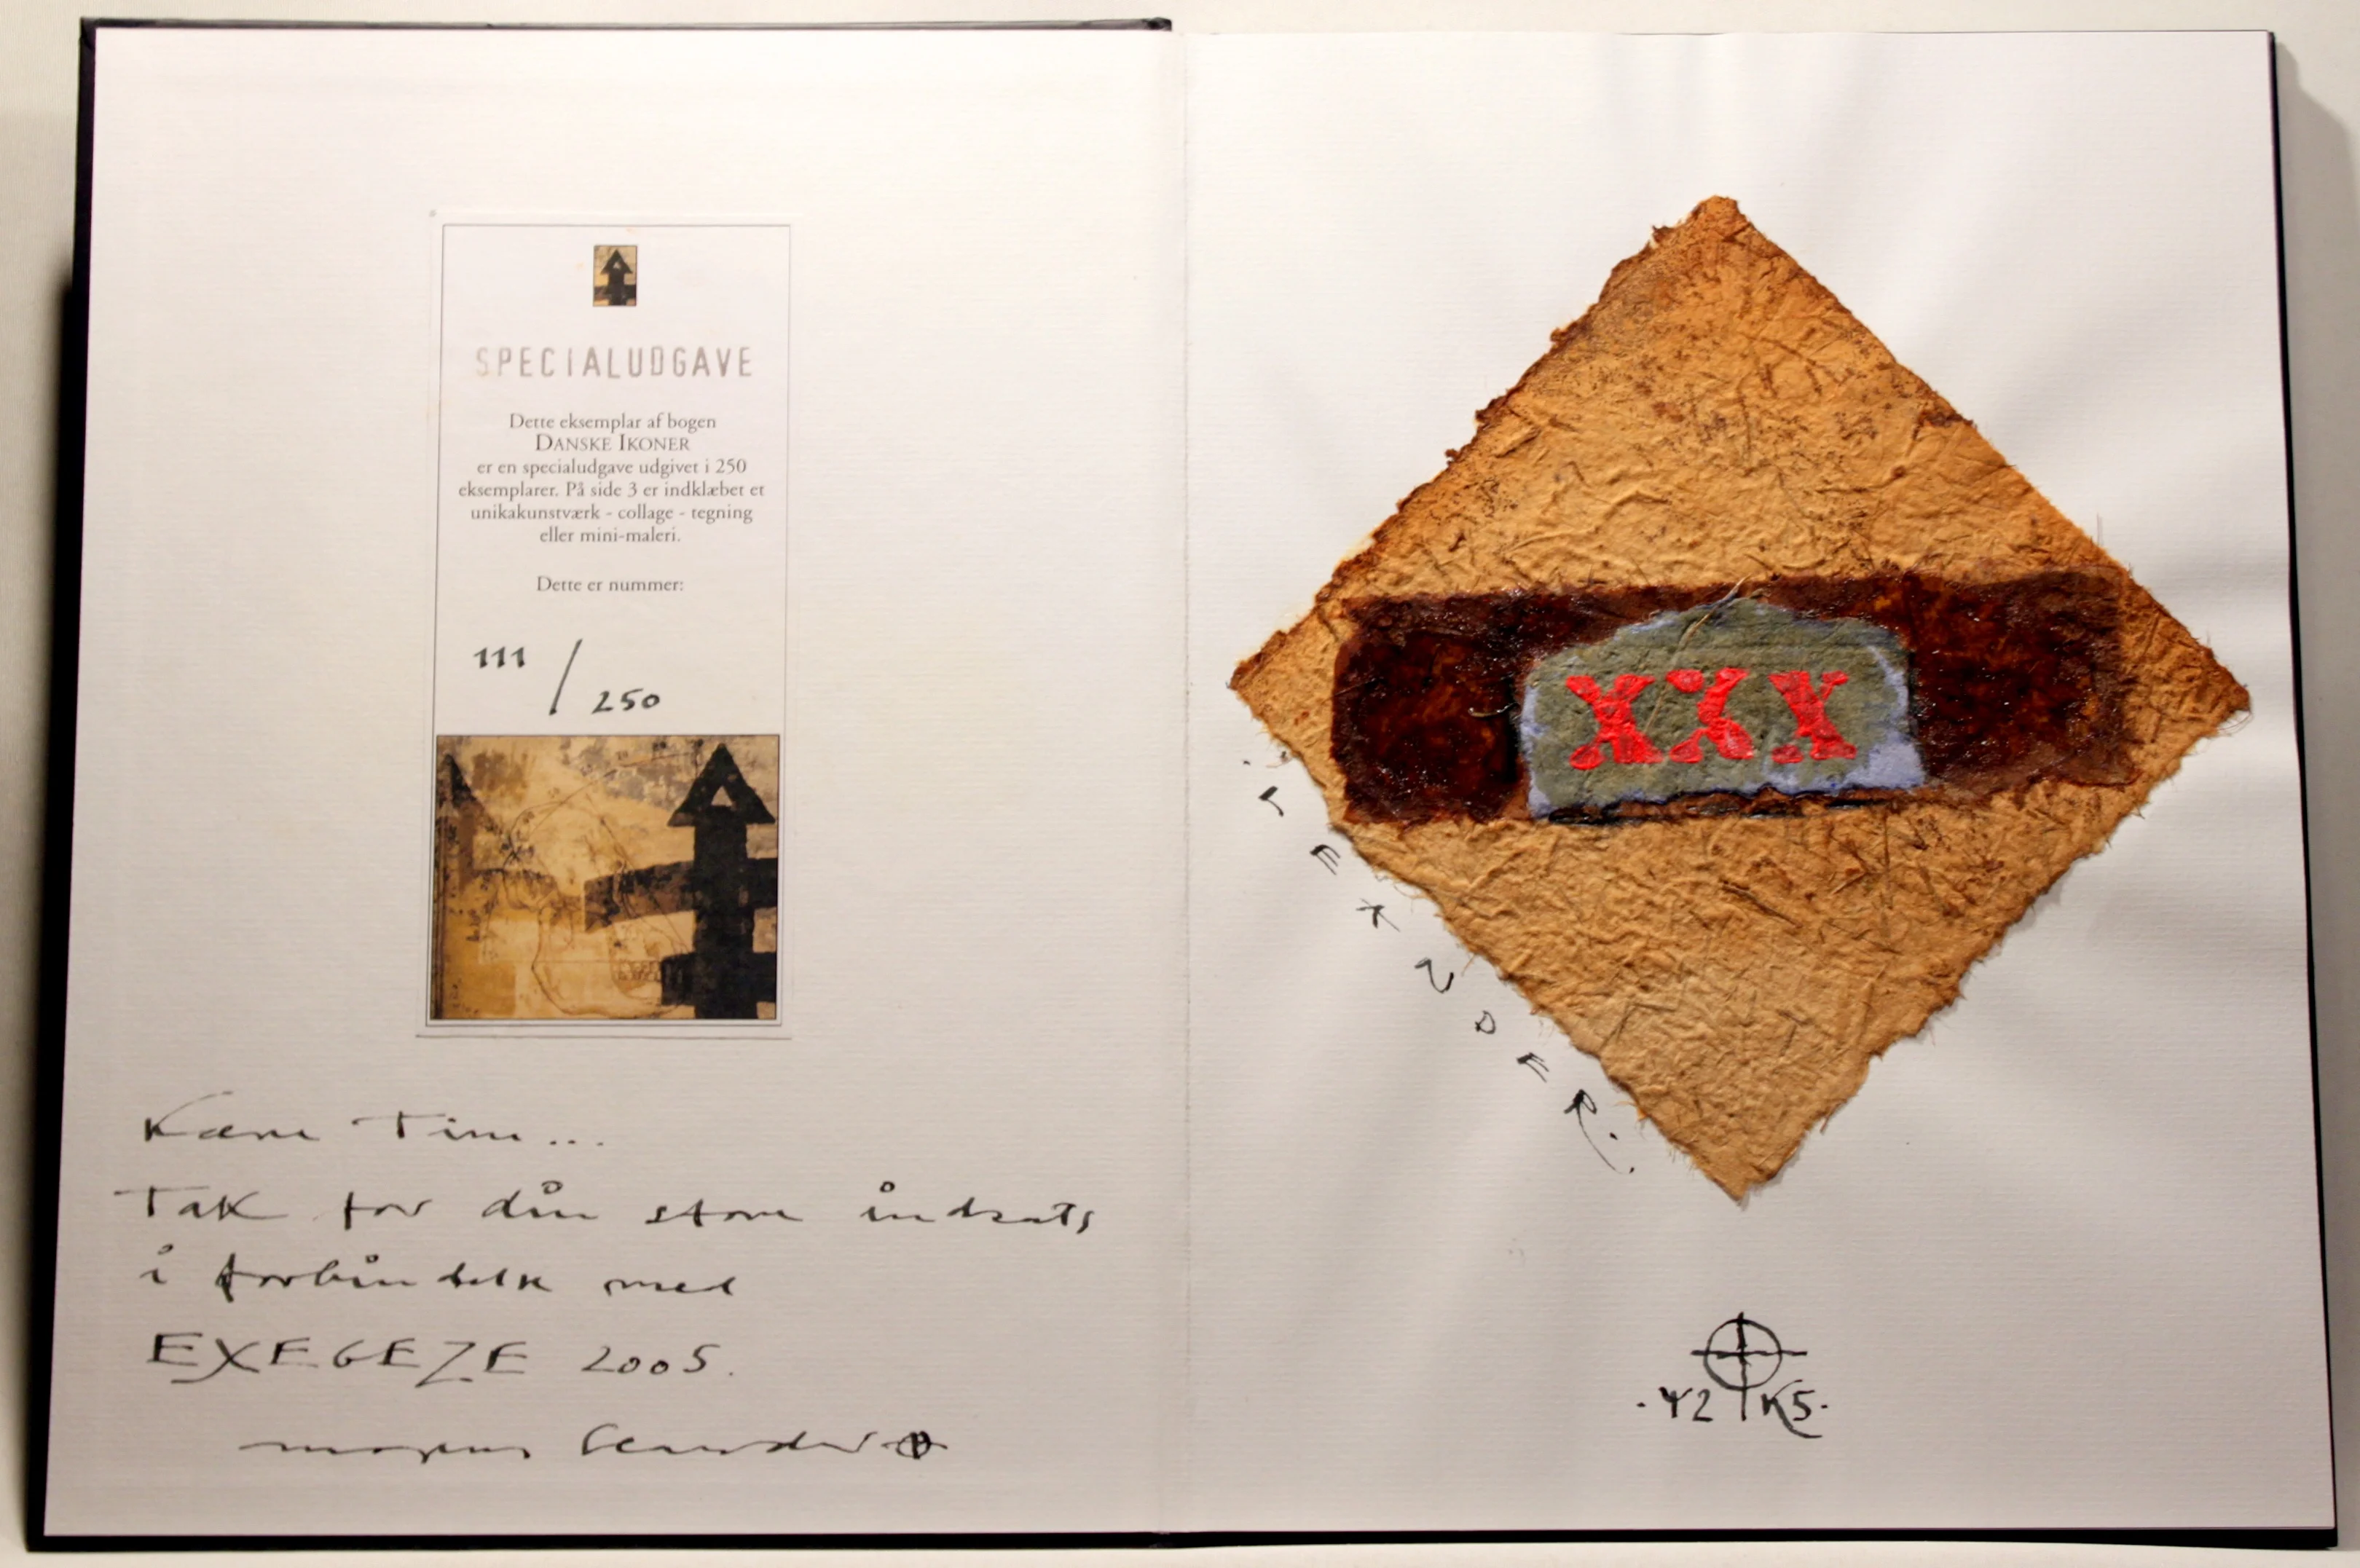 SPECIALUDGAVE
Dette eksemplar af bogen
DANSKE IKONER
er en specialudgave udgivet i 250
eksemplarer. På side 3 er indklæbet et
unikakunstværk - collage - tegning
eller mini-maleri.
Dette er nummer:
111 / 250
Kære Tim...
Tak for din store indsats
i forbindelse med
EXEGEZE 2005.
XXX